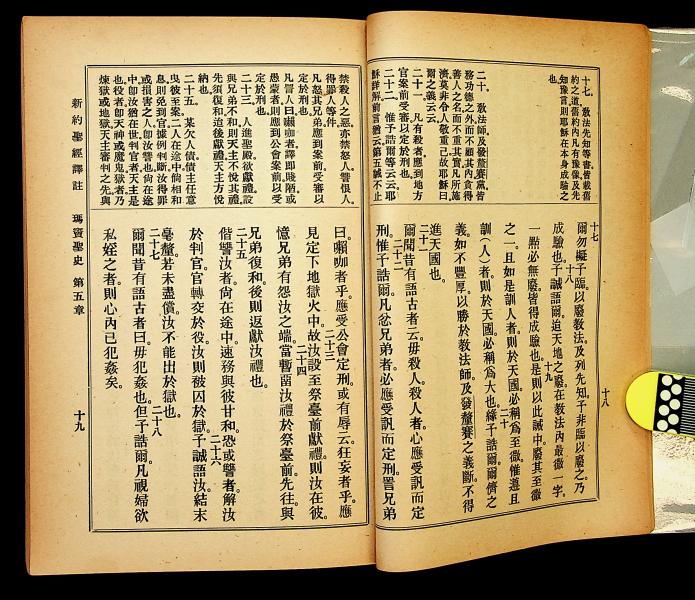 十七
爾勿擬予臨以廢教法及列先知予非臨以廢之乃
十八
成驗也予誠語爾迨天地之廢在教法內最微一字
十九
一點必無廢皆得成驗也是則以此誡中廢其至微
之一且如是訓人者則於天國必稱為至微惟遵且
二十
訓(人)者則於天國必稱為大也緣予語爾爾儕之
義如不豐厚以勝於教法師及發釐賽之義斷不得
進天國也
二十一
爾聞昔有語古者云毋殺人殺人者心應受訊而定
二十二
刑惟予語爾凡忿兄弟者必應受訊而定刑詈兄弟
十七 教法先知等書皆載舊
約之道舊約內凡有豫像及先
知豫言則耶穌在本身成驗之
也
二十 教法師及發釐賽黨皆
務功德之外而不顧其內貪得
善人之名而不重其實凡所施
濟莫非令人敬重己故耶穌曰
爾之義云云
二十一 凡有殺者應到地方
官案前受審以定於刑也
二十二 惟予語爾等云云耶
穌詳解前言猶云第五誡不止
十八
曰嚹咖者乎應受公會定刑或有辱云狂妄者乎應
二十三
見定下地獄火中故汝設至祭臺前獻禮則汝在彼
二十四
憶兄弟有怨汝之端當暫畱汝禮於祭臺前先往與
兄弟復和後則返獻汝禮也
二十五
偕讐汝者尚在途中速務與彼甘和恐或讐者解汝
二十六
於判官官轉交於役汝則被囚於獄予誠語汝結末
毫釐若未盡償汝不能出於獄也
二十七 二十八
爾聞昔有語古者曰毋犯姦也但予語爾凡視婦欲
私姪之者則心內已犯姦矣
禁殺人之惡亦禁怒人讐恨人
得罪人等件
凡怒其兄弟應到案前受審以
定於刑也
凡詈人曰嚹咖者譯即賤陋或
愚蒙者則應到公會案前以受
定於刑也
二十三 人進聖殿欲獻禮設
與兄弟不和則天主不悅其禮
先須復和迨後獻禮天主方悅
納也
二十五 某欠人債債主任意
曳彼至案二人在途中倘相和
息則免到官據例判斷汝得罪
或損害之人即汝讐也尚在途
中即汝猶在世判官者天主是
也役者即天神或魔鬼獄者乃
煉獄或地獄天主審判之先與
新約聖經譯註 瑪竇聖史 第五章
十九